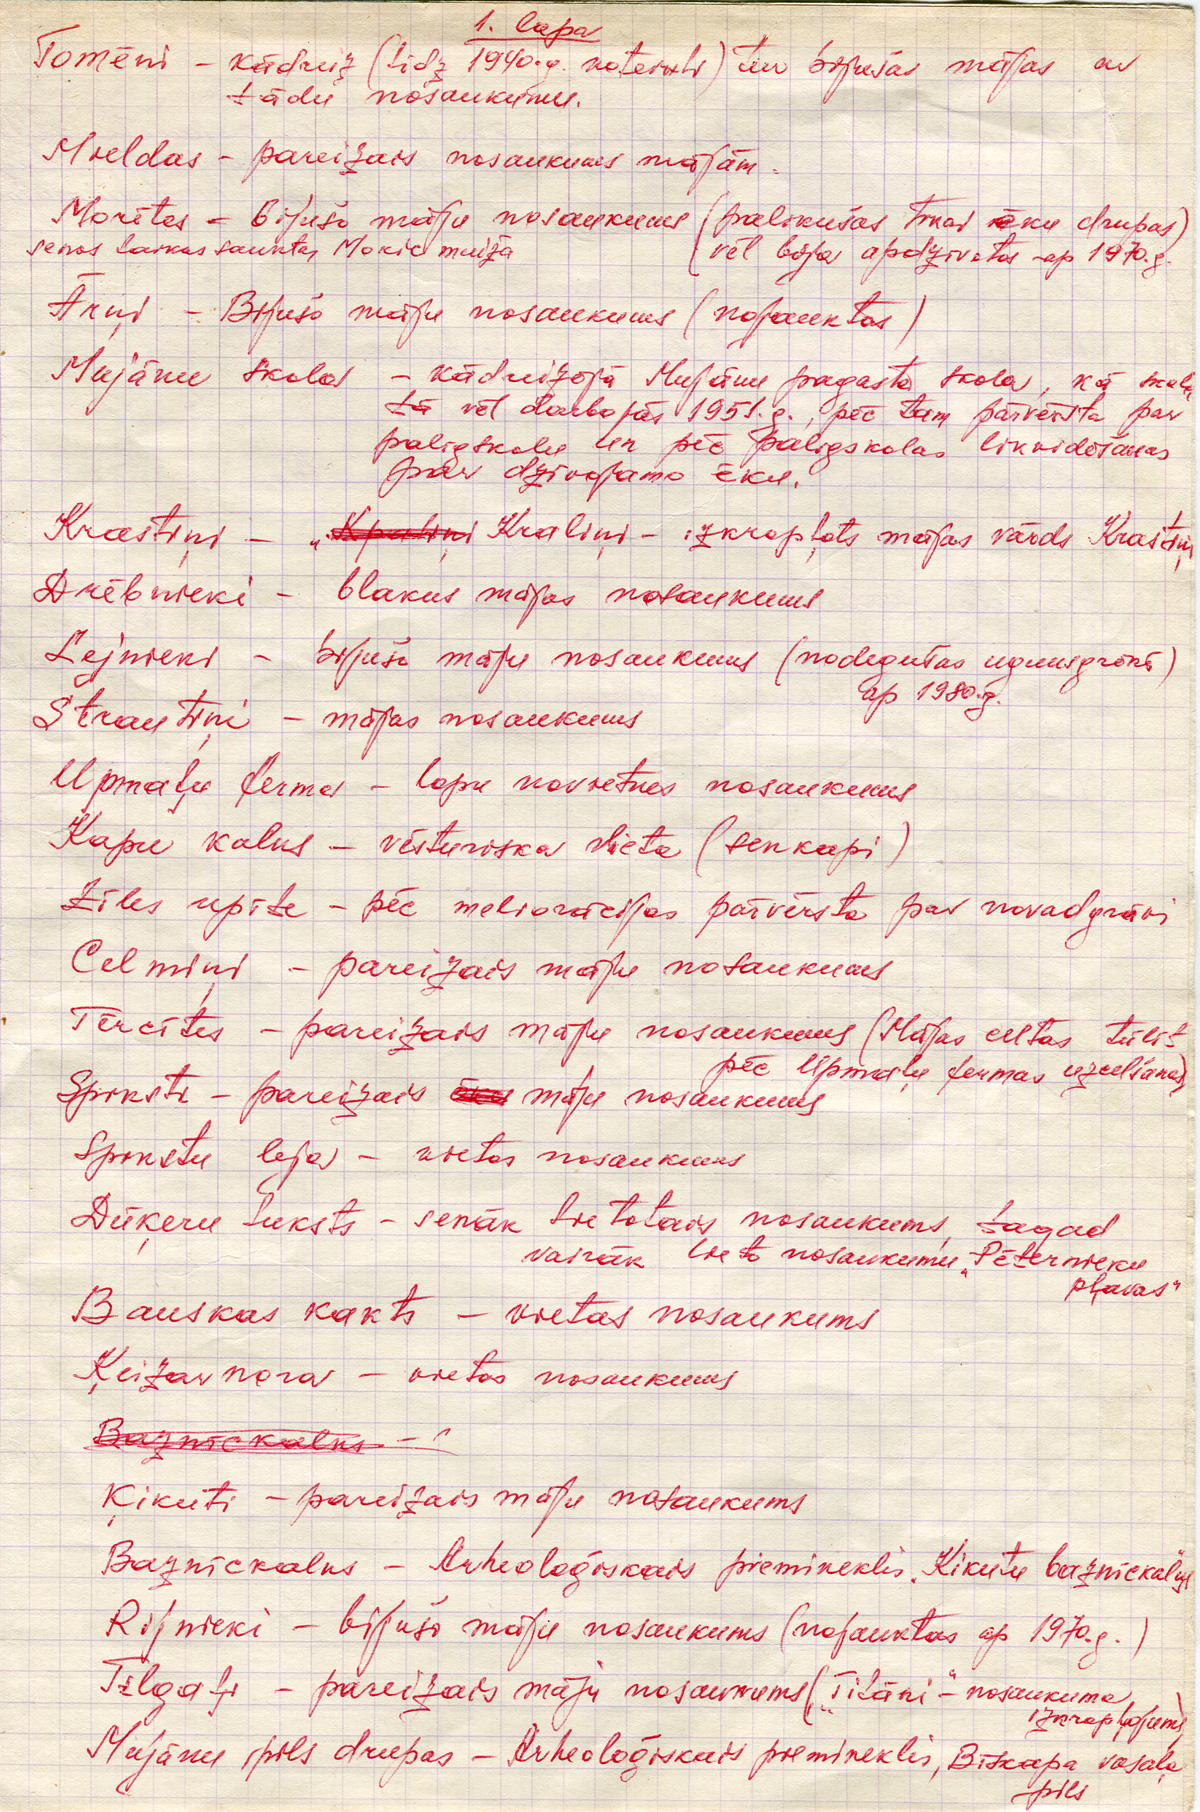 1. lapa
Tomēni – kādreiz (līdz 1940.g. noteikti) tur bijušās mājas ar
tādu nosaukumu.
Mieldas – pareizais nosaukums mājām.
Morītes – bijušo māju nosaukums (palikušas tikai ēku drupas)
senos laikos sauktas Moric muiža (vēl bija apdzīvotas ap 1970.g.
Āriņi – Bijušo māju nosaukums (nojauktas)
Mujānu skola – kādreizējā Mujānu pagasta skola, kā skola
tā vēl darbojās 1951.g., pēc tam pārvērsta par
palīgskolu un pēc palīgskolas likvidēšanas
par dzīvojamo ēku.
Krastiņi – „ Kraliņi – izkropļots mājas vārds Krastiņi
Drēbnieki – blakus mājas nosaukums
Lejnieki – bijušo māju nosaukums (nodegušas ugunsgrēkā)
ap 1980.g.
Strautiņi – mājas nosaukums
Upmaļu ferma – lopu novietnes nosaukums
Kapu kalns – vēsturiska vieta (senkapi)
Zīles upīte – pēc meliorācijas pārvērsta par novadgrāvi
Celmiņi – pareizais māju nosaukums
Tērcītes – pareizais māju nosaukums (Mājas celtas tūlīt
pēc Upmaļu fermas uzcelšanas)
Sprosti – pareizais māju nosaukums
Sprostu leja – vietas nosaukums
Dūķeru luksts – senāk lietotais nosaukums, tagad
vairāk lieto nosaukumu „Pēternieku
pļavas“
Bauskas kakts – vietas nosaukums
Ķeizarnora – vietas nosaukums
Baznīckalns –
Ķikuti – pareizais māju nosaukums
Baznīckalns – Arheoloģiskais piemineklis. Ķikutu baznīckalns
Rijnieki – bijušo māju nosaukums (nojauktas ap 1970.g.)
Tilgaļi – pareizais māju nosaukums („Titāni“ – nosaukuma
izkropļojums)
Mujānu pils drupas – Arheoloģiskais piemineklis, Bīskapa vasaļa
pils